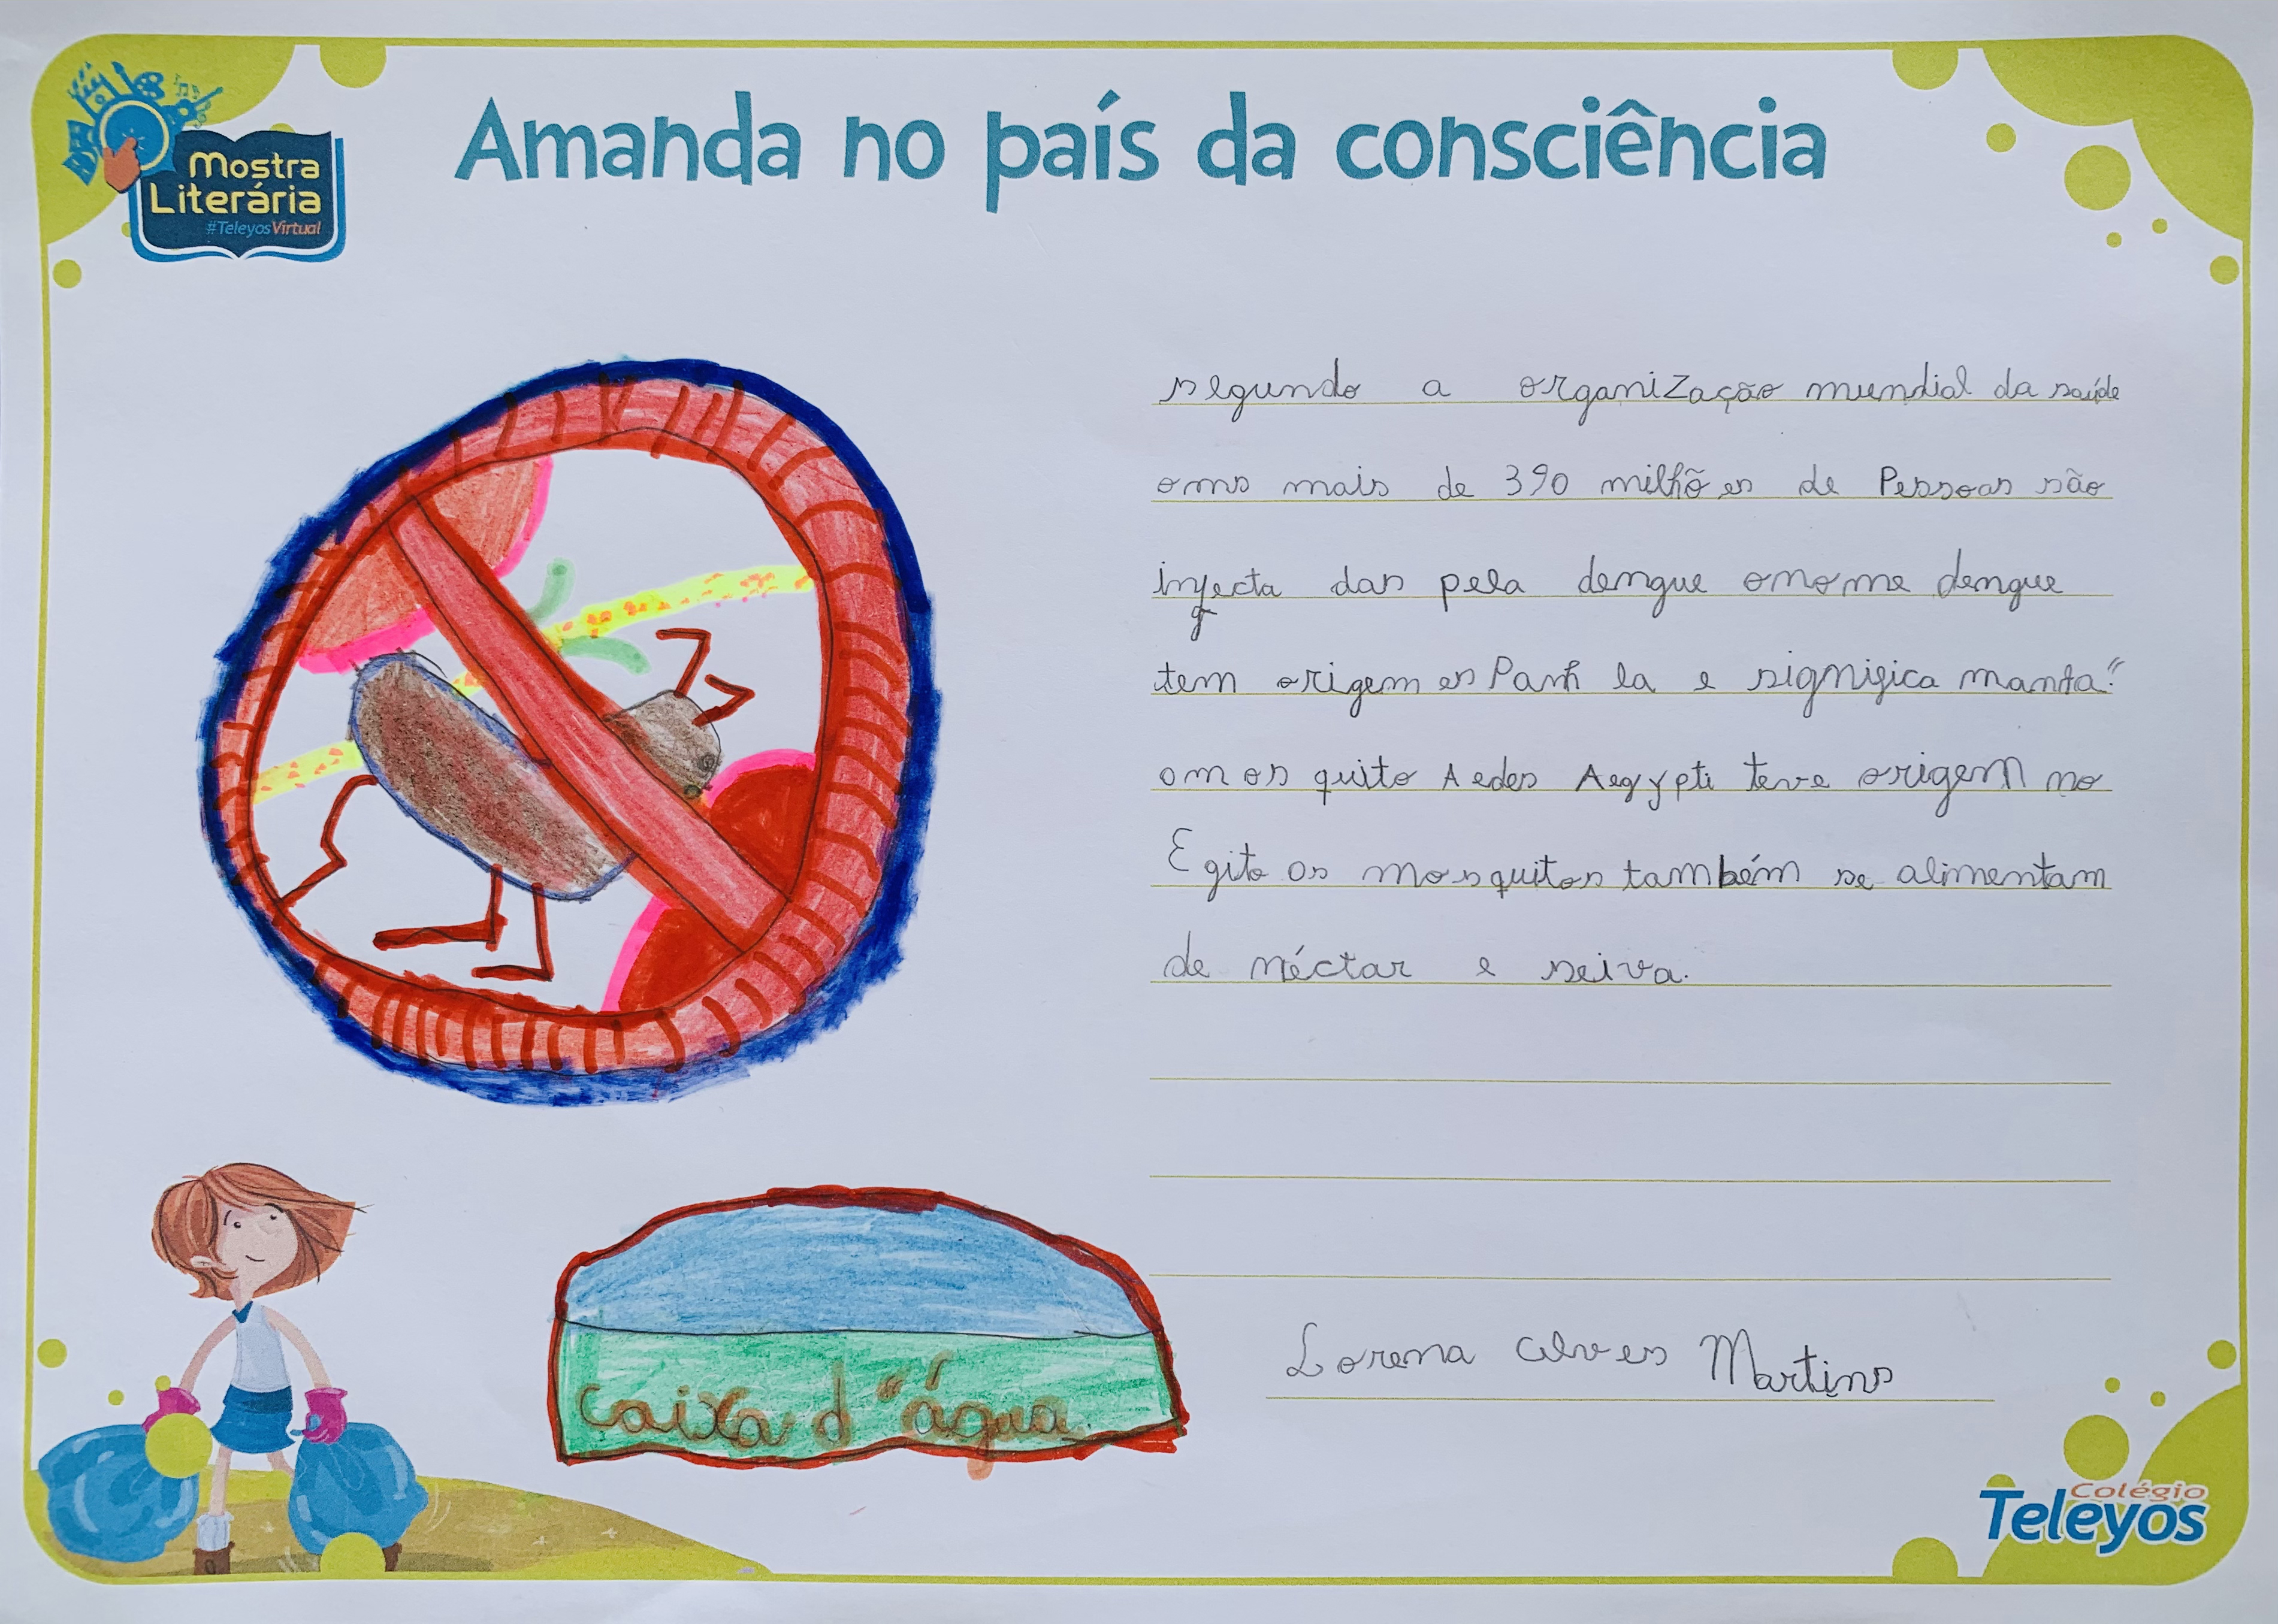 Mostra
Literária
#TeleyosVirtual
Amanda no país da consciência
segundo a organização mundial da saúde
oms mais de 390 milhões de Pessoas são
infecta das pela dengue onome dengue
tem origem es Panh la e significa manta"
omos quito Aedes Aegypti teve origem no
Egito os mosquitos também se alimentam
de néctar e seiva.
caixa d"água
Lorena alves Martins
Colégio
Teleyos